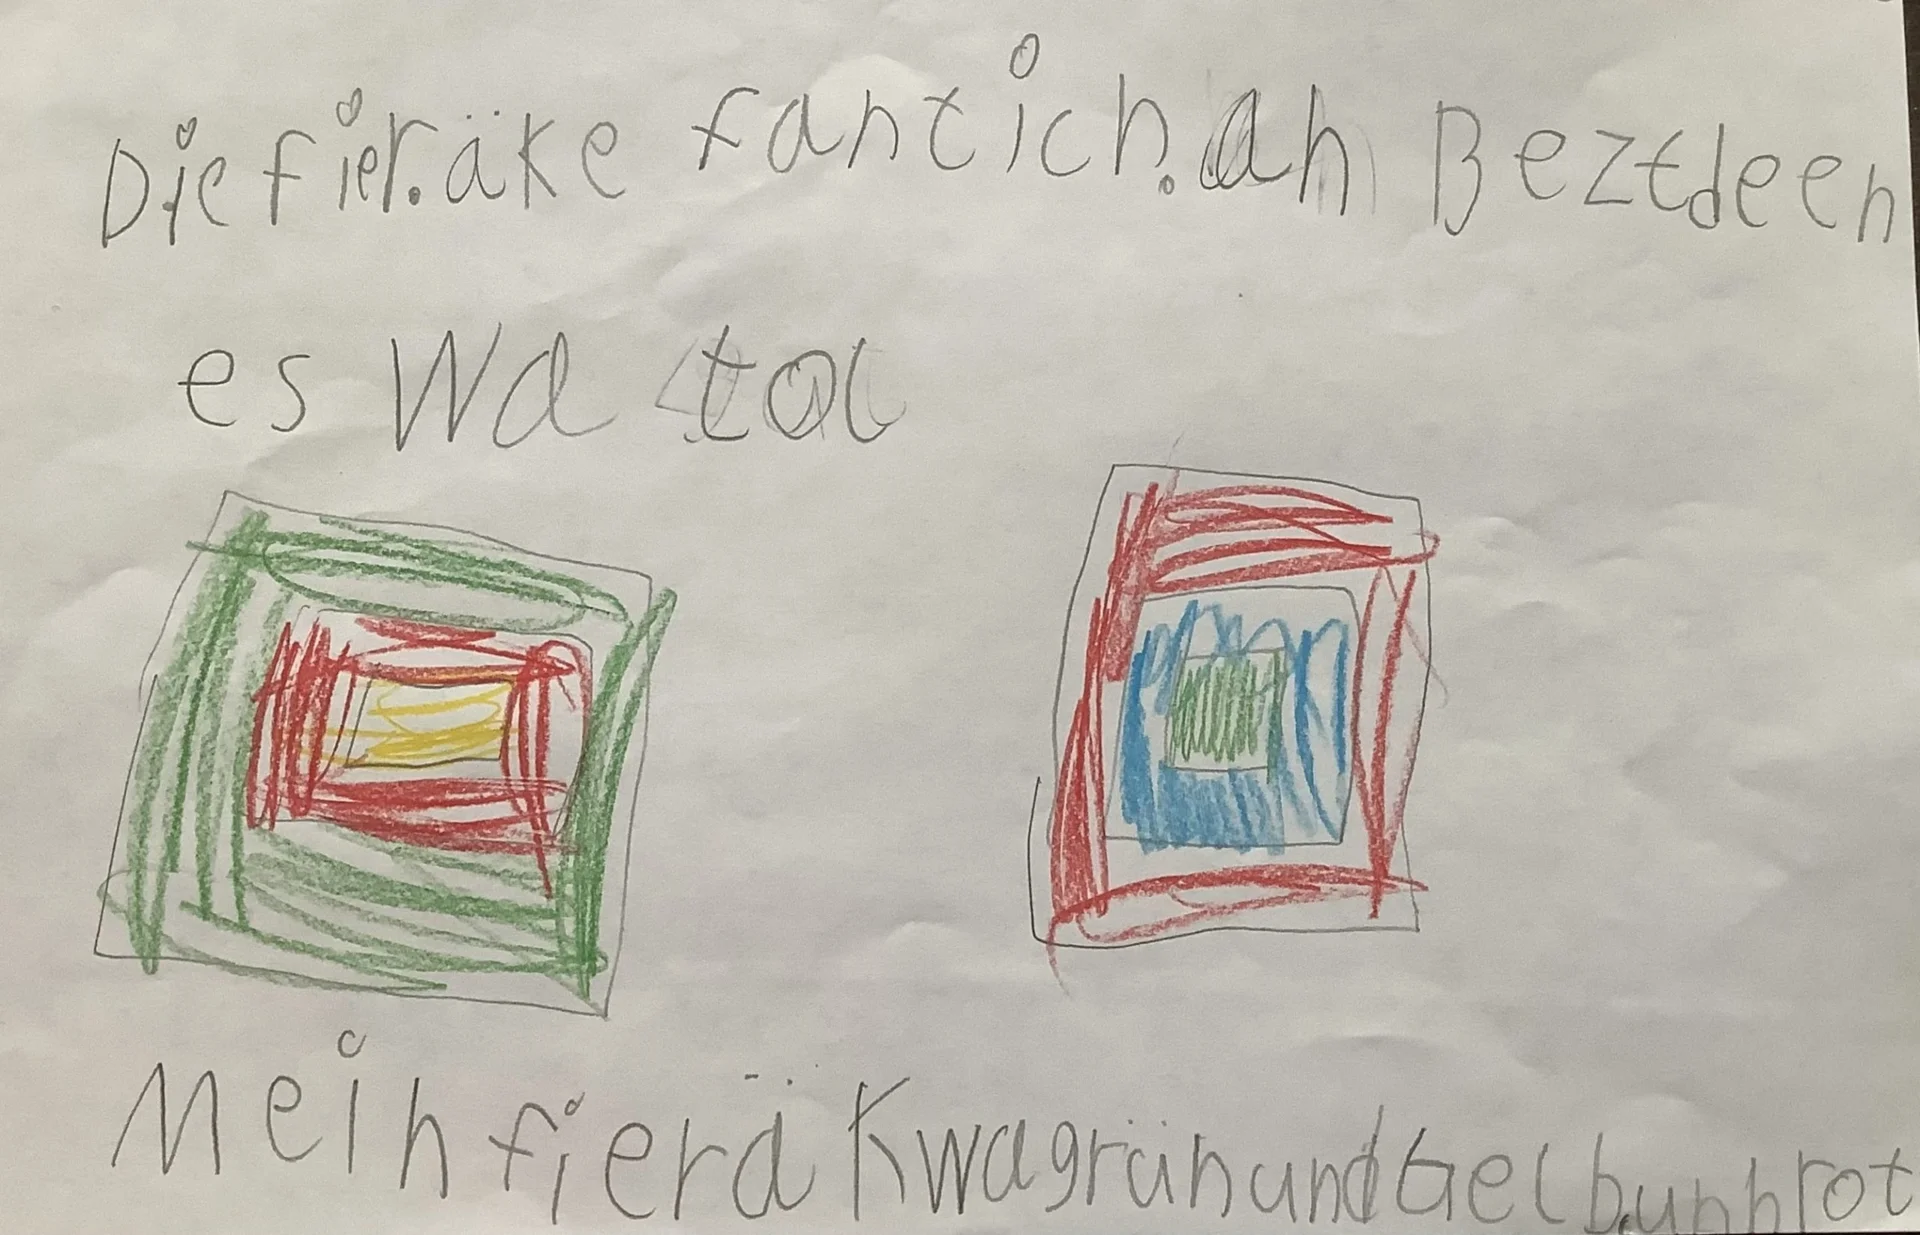 Die fier.äke fantich.ah Beztdeen
es wa tol
Mein fierä Kwagrünund Gelbunbrot